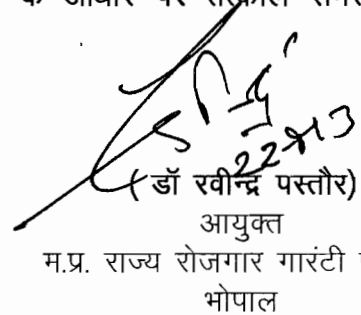 के आधार पर तत्काल
(डॉ रवीन्द्र पस्तौर)
आयुक्त
म.प्र. राज्य रोजगार गारंटी
भोपाल